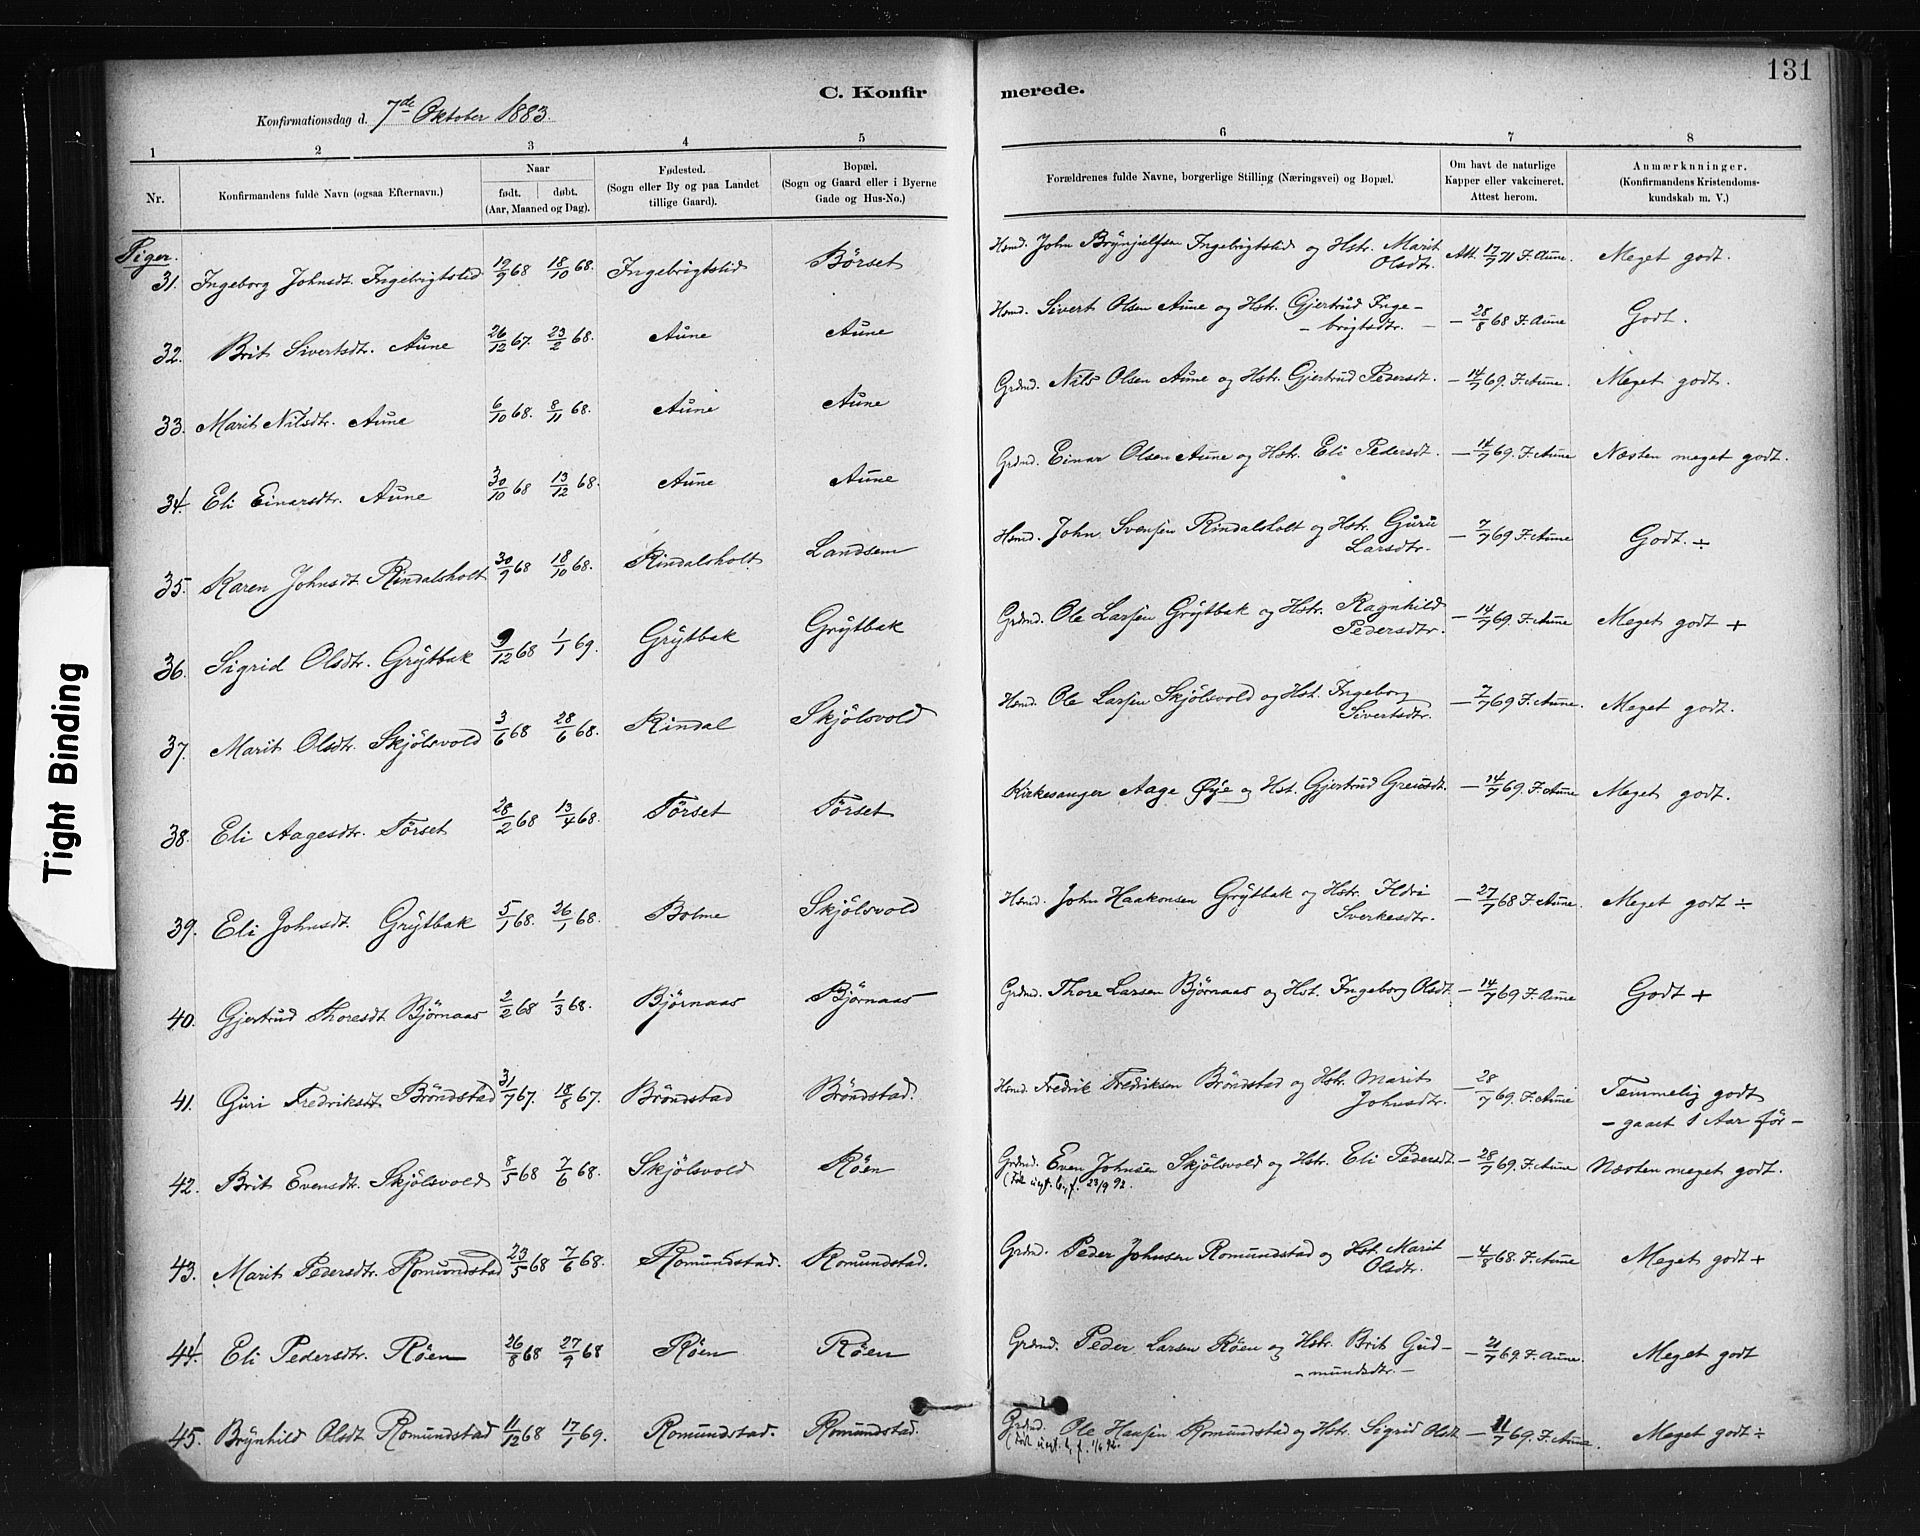 131
C. Konfirmerede.
Konfirmationsdag d. 7de Oktober 1883.
1 2 3 4 5 6 7 8
Nr. Konfirmandens fulde Navn (ogsaa Efternavn). Naar født. døbt. (Aar, Maaned og Dag). Fødested. (Sogn eller By og paa Landet tillige Gaard). Bopæl. (Sogn og Gaard eller i Byerne Gade og Hus-No.) Forældrenes fulde Navne, borgerlige Stilling (Næringsvei) og Bopæl. Om havt de naturlige Kapper eller vakcineret. Attest herom. Anmærkninger. (Konfirmandens Kristendomskundskab m. V.)
Piger.
31. Ingeborg Johnsdt. Ingebrigtslid 19/9 68 18/10 68. Ingebrigtslid Børset Hsmd. John Brynjulfsen Ingebrigtslid og Hstr. Marit Olsdtr. Att. 17/7 71 F. Aune. Meget godt.
32. Brit Sivertsdtr. Aune 26/12 67. 23/2 68. Aune Aune Hsmd. Sivert Olsen Aune og Hstr. Gjertrud Ingebrigtsdtr. — 28/8 68 F. Aune Godt.
33. Marit Nilsdtr. Aune 6/10 68. 8/11 68. Aune Aune Grdmd. Nils Olsen Aune og Hstr. Gjertrud Pedersdt. — 14/7 69. F. Aune. Meget godt.
34. Eli Einarsdtr. Aune 30/10 68 13/12 68. Aune Aune Grdmd. Einar Olsen Aune og Hstr. Eli Pedersdt. — 14/7 69. F. Aune Næsten meget godt.
35. Karen Johnsdt. Rindalsholt 30/9 68 18/10 68. Rindalsholt Landsem Hsmd. John Svensen Rindalsholt og Hstr. Guru Larsdtr. — 7/7 69 F. Aune Godt. ÷
36. Sigrid Olsdtr. Grytbak 9/12 68 1/1 69. Grytbak Grytbak Grdmd. Ole Larsen Grytbak og Hstr. Ragnhild Pedersdtr. — 14/7 69. F. Aune Meget godt +
37. Marit Olsdtr. Skjölsvold 3/6 68 28/6 68. Rindal Skjölsvold Hsmd. Ole Larsen Skjölsvold og Hst. Ingeborg Sivertsdtr. — 7/7 69 F. Aune. Meget godt.
38. Eli Aagesdtr. Törset 28/2 68 13/4 68. Törset Törset Kirkesanger Aage Øye og Hst. Gjertrud Greisdt. — 14/7 69. F. Aune Meget godt.
39. Eli Johnsdt. Grytbak 5/1 68. 26/1 68. Bolme Skjölsvold Hsmd. John Haakonsen Grytbak og Hstr. Ildri Sverkesdtr. — 27/7 68 F. Aune. Meget godt ÷
40. Gjertrud Thoresdt. Björnaas 2/2 68 1/3 68. Björnaas Björnaas Grdmd. Thore Larsen Björnaas og Hst. Ingeborg Olsdt. — 14/7 69 F. Aune Godt +
41. Guri Fredriksdt. Bröndstad 31/7 67. 18/8 67. Bröndstad Bröndstad. Hsmd. Fredrik Fredriksen Bröndstad og Hstr. Marit Johnsdtr. — 28/7 69. F. Aune Temmelig godt — gaaet 1 Aar för —
42. Brit Evensdt. Skjölsvold 8/5 68 7/6 68. Skjölsvold Röen Grdmd. Even Johnsen Skjölsvold og Hstr. Eli Pedersdt. — 28/7 69. F. Aune Næsten meget godt.
23/9 92.
43. Marit Pedersdtr. Romundstad 23/5 68 7/6 68. Romundstad. Romundstad. Grdmd. Peder Johnsen Romundstad og Hst. Marit Olsdtr. — 4/8 68. F. Aune Meget godt +
44. Eli Pedersdtr. Röen 26/8 68 27/9 68 Röen Röen Grdmd. Peder Larsen Röen og Hstr. Brit Gudmundsdtr. — 21/7 69. F. Aune. Meget godt
45. Brynhild Olsdt. Romundstad 11/12 68 17/1 69. Romundstad. Romundstad. Grdmd. Ole Hansen Romundstad og Hstr. Sigrid Olsdt. — 11/7 69. F. Aune. Meget godt ÷
Tight Binding